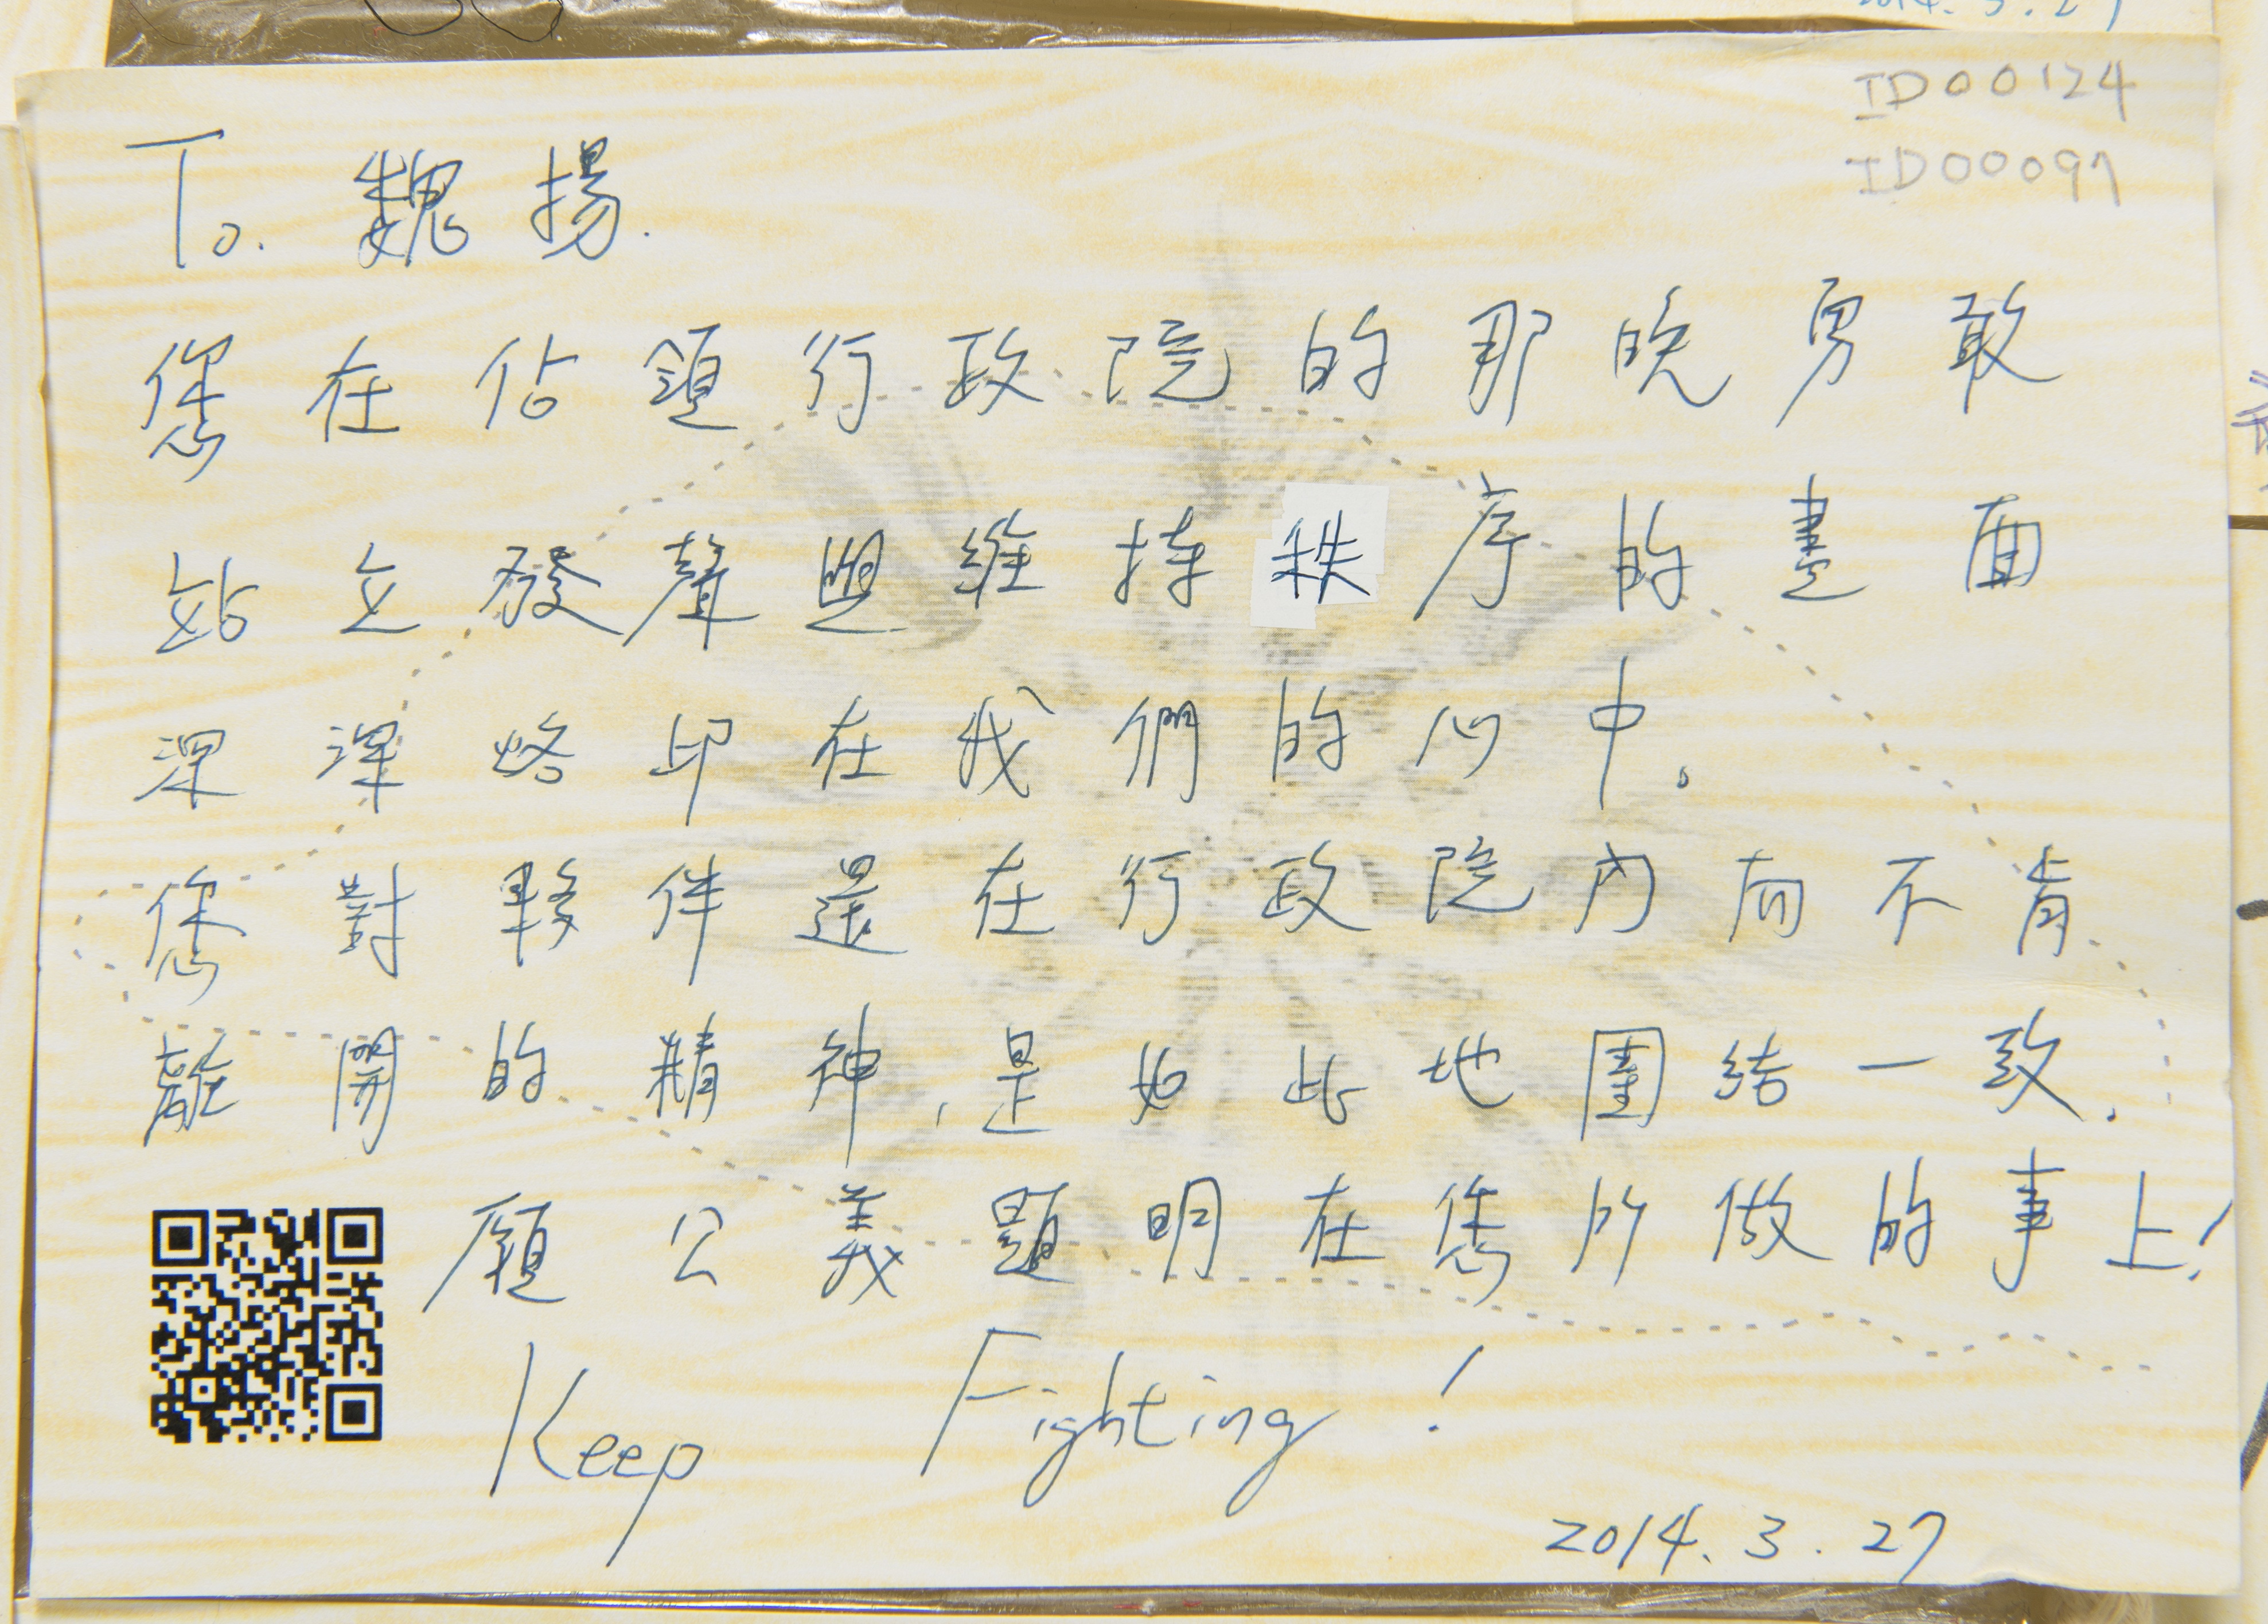 ID00124
ID00097
To. 魏揚.
您在佔領行政院的那晚勇敢
站立發聲與維持秩序的畫面
深深烙印在我們的心中。
您對夥伴還在行政院內而不肯
離開的精神,是如此地團結一致.
願公義顯明在您所做的事上!
Keep Fighting!
2014.3.27